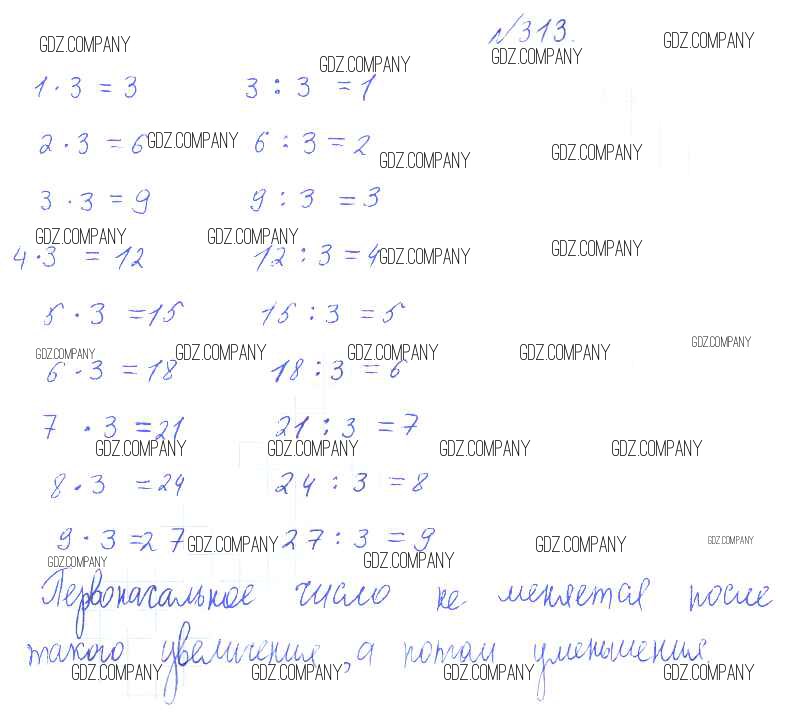 №313.
GDZ.COMPANY GDZ.COMPANY GDZ.COMPANY GDZ.COMPANY
1 · 3 = 3 3 : 3 = 1
2 · 3 = 6 GDZ.COMPANY 6 : 3 = 2 GDZ.COMPANY GDZ.COMPANY
3 · 3 = 9 9 : 3 = 3
GDZ.COMPANY GDZ.COMPANY GDZ.COMPANY
4 · 3 = 12 12 : 3 = 4 GDZ.COMPANY
5 · 3 = 15 15 : 3 = 5
GDZ.COMPANY GDZ.COMPANY GDZ.COMPANY GDZ.COMPANY GDZ.COMPANY
6 · 3 = 18 18 : 3 = 6
7 · 3 = 21 21 : 3 = 7
GDZ.COMPANY GDZ.COMPANY GDZ.COMPANY GDZ.COMPANY
8 · 3 = 24 24 : 3 = 8
9 · 3 = 27 GDZ.COMPANY 27 : 3 = 9 GDZ.COMPANY GDZ.COMPANY
GDZ.COMPANY GDZ.COMPANY
Первоначальное число не меняется после
такого увеличения, а потом уменьшения.
GDZ.COMPANY GDZ.COMPANY GDZ.COMPANY GDZ.COMPANY